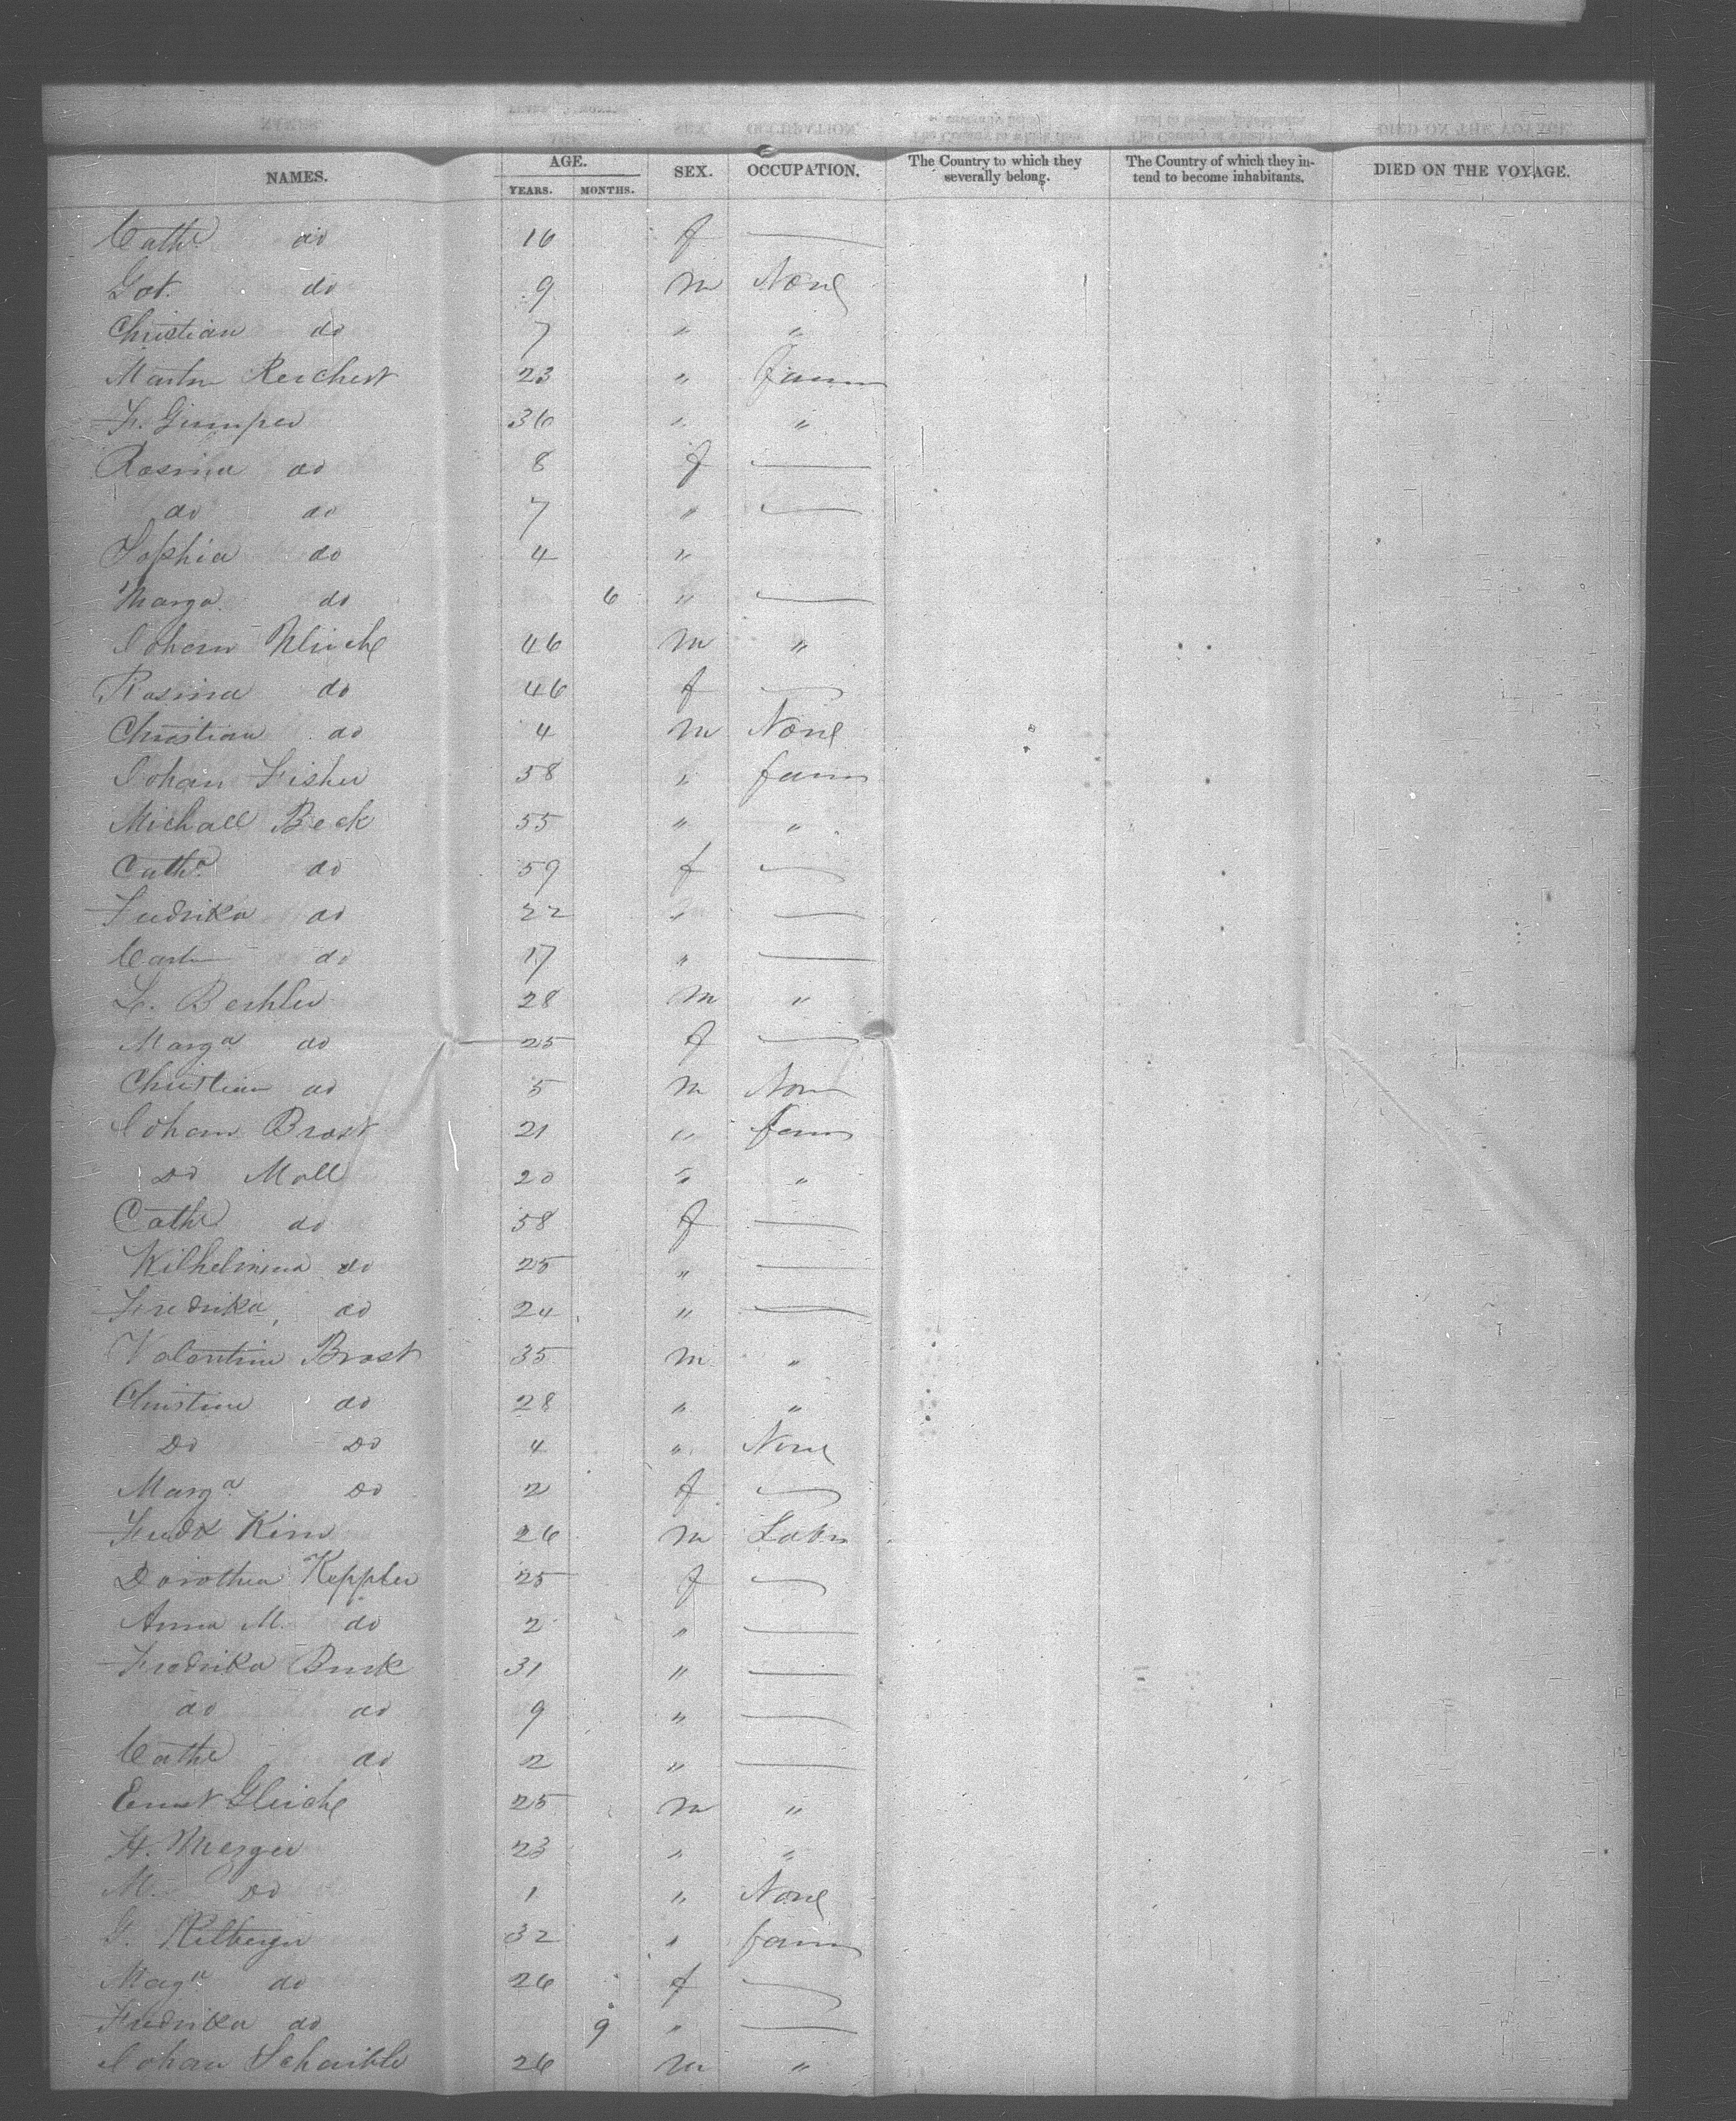 NAMES. AGE. YEARS. MONTHS. SEX. OCCUPATION. The Country to which they severally belong. The Country of which they intend to become inhabitants. DIED ON THE VOYAGE.
Cathe do 16 f —
Got. do 9 m None
Christian do 7 " "
Martin Reichert 23 " farm
F. Gimper 36 " "
Rosina do 8 f —
do do 7 " —
Sophia do 4 "
Marga. do 6 " —
Johann Ulriche 46 m "
Rosina do 46 f —
Christian do 4 m None
Johan Fisher 58 " farm
Michall Beck 55 " "
Catha do 59 f —
Fredrika do 22 " —
do 17 " —
28 m "
Marga do 25 f —
Christian do 5 m None
Johann Brost 21 " farm
Do Moll 20 " "
Cathe do 58 f —
Wilhelmina do 25 " —
Fredrika, do 24 " —
Valentine Brost 35 m "
Christine do 28 " "
Do Do 4 " None
Marga Do 2 f —
Fredk Kim 26 m Labr
Dorothea Keppler 25 f —
Anna M. do 2 " —
Fredrika Burk 31 " —
do do 9 " —
Cathe do 2 " —
Ernst Gleiche 25 m "
H. Mezger 23 " "
M. Do 1 " None
G. 32 " farm
Maga do 26 f —
Fredrika do 9 " —
Johan Schaible 26 m "